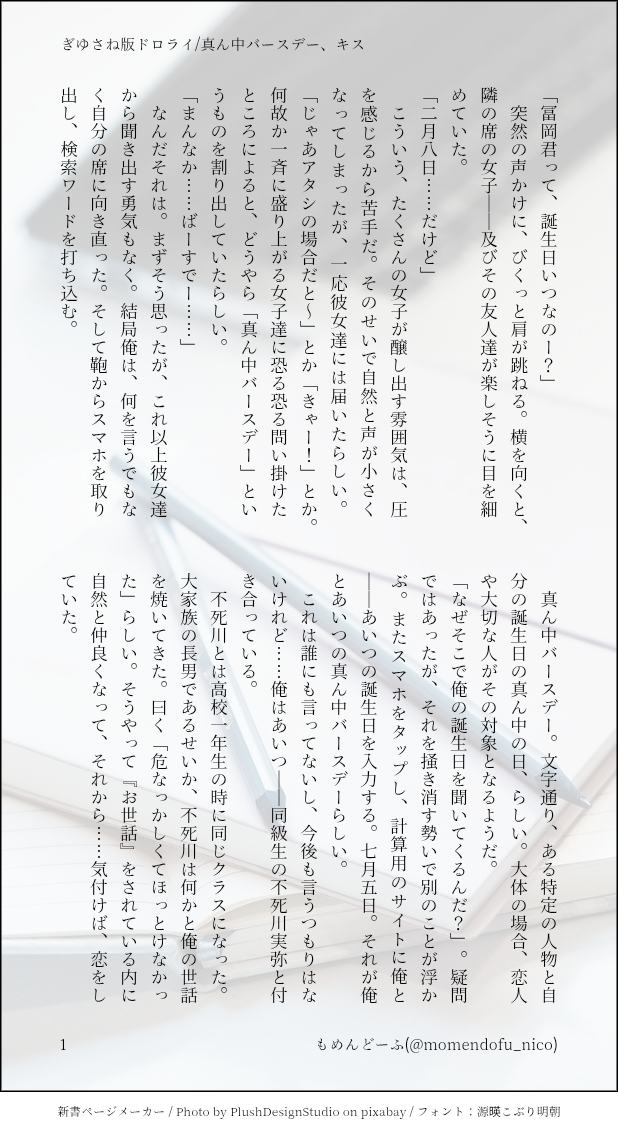 ぎゆさね版ドロライ/真ん中バースデー、キス
「冨岡君って、誕生日いつなのー？」
　突然の声かけに、びくっと肩が跳ねる。横を向くと、
隣の席の女子――及びその友人達が楽しそうに目を細
めていた。
「二月八日……だけど」
　こういう、たくさんの女子が醸し出す雰囲気は、圧
を感じるから苦手だ。そのせいで自然と声が小さく
なってしまったが、一応彼女達には届いたらしい。
「じゃあアタシの場合だと～」とか「きゃー！」とか。
何故か一斉に盛り上がる女子達に恐る恐る問い掛けた
ところによると、どうやら「真ん中バースデー」とい
うものを割り出していたらしい。
「まんなか……ばーすでー……」
　なんだそれは。まずそう思ったが、これ以上彼女達
から聞き出す勇気もなく。結局俺は、何を言うでもな
く自分の席に向き直った。そして鞄からスマホを取り
出し、検索ワードを打ち込む。
　真ん中バースデー。文字通り、ある特定の人物と自
分の誕生日の真ん中の日、らしい。大体の場合、恋人
や大切な人がその対象となるようだ。
「なぜそこで俺の誕生日を聞いてくるんだ？」。疑問
ではあったが、それを掻き消す勢いで別のことが浮か
ぶ。またスマホをタップし、計算用のサイトに俺と
――あいつの誕生日を入力する。七月五日。それが俺
とあいつの真ん中バースデーらしい。
　これは誰にも言ってないし、今後も言うつもりはな
いけれど……俺はあいつ――同級生の不死川実弥と付
き合っている。
　不死川とは高校一年生の時に同じクラスになった。
大家族の長男であるせいか、不死川は何かと俺の世話
を焼いてきた。曰く「危なっかしくてほっとけなかっ
た」らしい。そうやって『お世話』をされている内に
自然と仲良くなって、それから……気付けば、恋をし
ていた。
もめんどーふ(@momendofu_nico)
1
新書ページメーカー / Photo by PlushDesignStudio on pixabay / フォント：源暎こぶり明朝